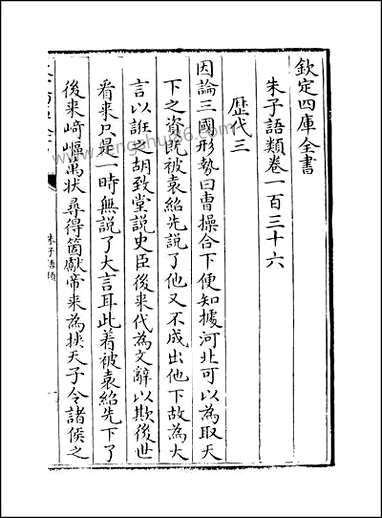 欽定四庫全書
朱子語類卷一百三十六
歴代三
因論三國形勢曰曹操合下便知據河北可以為取天
下之資既被袁紹先說了他又不成出他下故為大
言以誑之胡致堂說史臣後來代為文辭以欺後世
看來只是一時無說了大言耳此着被袁紹先下了
後來崎嶇萬狀尋得箇獻帝來為挾天子令諸侯之
朱子語類